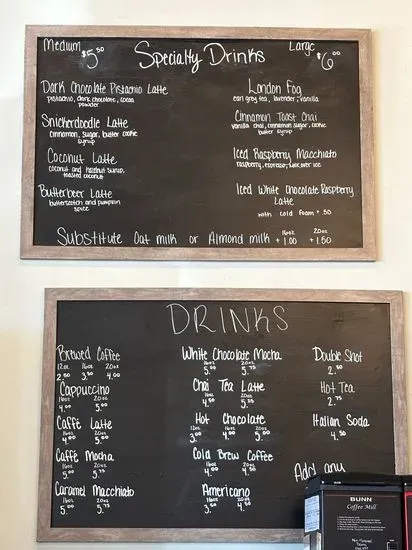 Medium $5.50 Specialty Drinks Large $6.00
Dark Chocolate Pistachio Latte
pistachio, dark chocolate, cocoa
powder
Snickerdoodle Latte
cinnamon, sugar, butter cookie
syrup
Coconut Latte
coconut and hazelnut syrup,
toasted coconut
Butterbeer Latte
butterscotch and pumpkin
spice
London Fog
earl grey tea, lavender, vanilla
Cinnamon Toast Chai
vanilla chai, cinnamon sugar, cookie
butter syrup
Iced Raspberry Macchiato
raspberry, espresso, milk, over ice
Iced White Chocolate Raspberry
Latte
with cold foam + .50
Substitute Oat milk or Almond milk 16oz + 1.00 20oz + 1.50
DRINKS
Brewed Coffee
12oz 16oz 20oz
2.50 3.50 4.00
Cappuccino
16oz 20oz
4.00 5.00
Caffé Latte
16oz 20oz
4.00 5.00
Caffé Mocha
16oz 20oz
5.00 5.75
Caramel Macchiato
16oz 20oz
5.00 5.75
White Chocolate Mocha
16oz 20oz
5.00 5.75
Chai Tea Latte
16oz 20oz
4.50 5.50
Hot Chocolate
12oz 16oz 20oz
3.00 4.00 5.00
Cold Brew Coffee
16oz 20oz
4.00 4.50
Americano
16oz 20oz
3.50 4.50
Double Shot
2.50
Hot Tea
2.75
Italian Soda
4.50
Add any
BUNN
Coffee Mill